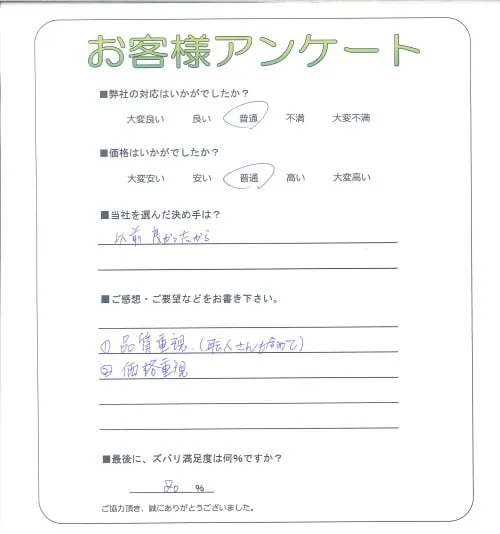 お客様アンケート
■弊社の対応はいかがでしたか？
大変良い 良い 普通 不満 大変不満
■価格はいかがでしたか？
大変安い 安い 普通 高い 大変高い
■当社を選んだ決め手は？
以前良かったから
■ご感想・ご要望などをお書き下さい。
① 品質重視（職人さん含めて）
② 価格重視
■最後に、ズバリ満足度は何％ですか？
80 ％
ご協力頂き、誠にありがとうございました。